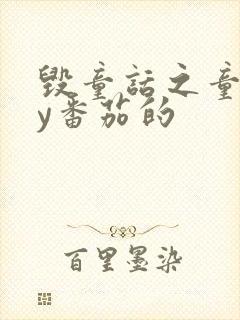 毁童话之童
y番茄的
百里墨染